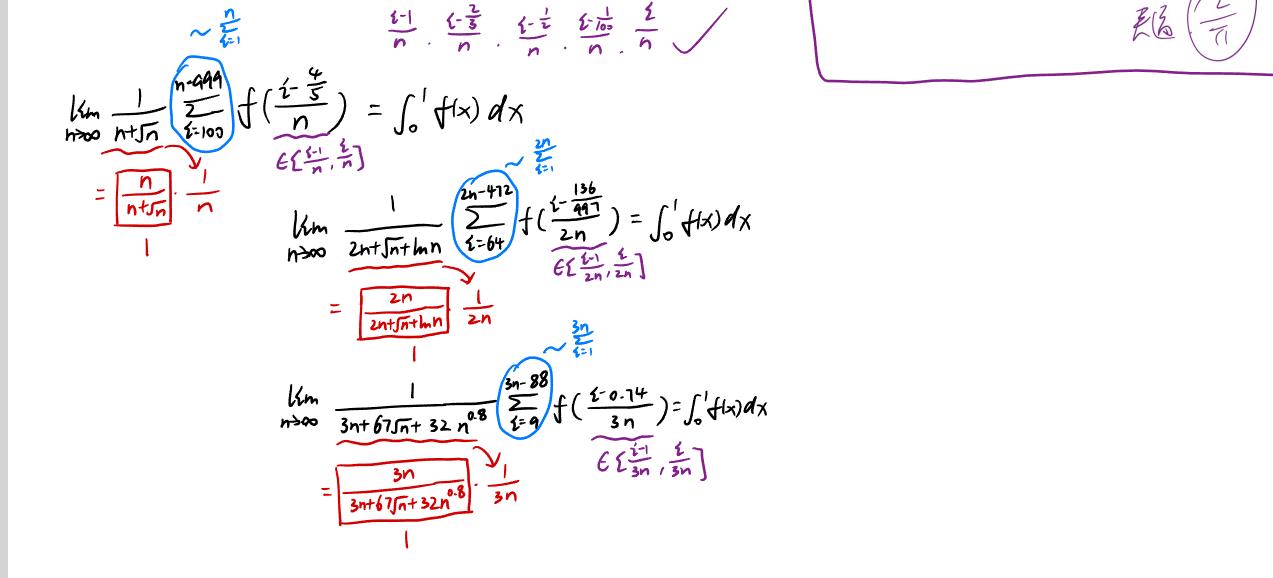 ~ n Σ i=1
(i-1)/n . (i-2/3)/n . (i-1/2)/n . (i-1/100)/n . i/n ✓
2/π
lim n→∞ 1/(n+√n) Σ_{i=100}^{n-999} f( (i-4/5)/n ) = ∫₀¹ f(x) dx
∈[(i-1)/n, i/n]
= n/(n+√n) · 1/n
1
~ 2n Σ i=1
lim n→∞ 1/(2n+√n+ln n) Σ_{i=64}^{2n-472} f( (i-136/997)/2n ) = ∫₀¹ f(x) dx
∈[(i-1)/2n, i/2n]
= 2n/(2n+√n+ln n) · 1/2n
1
~ 3n Σ i=1
lim n→∞ 1/(3n+67√n+32 n^0.8) Σ_{i=9}^{3n-88} f( (i-0.74)/3n ) = ∫₀¹ f(x) dx
∈[(i-1)/3n, i/3n]
= 3n/(3n+67√n+32n^0.8) · 1/3n
1